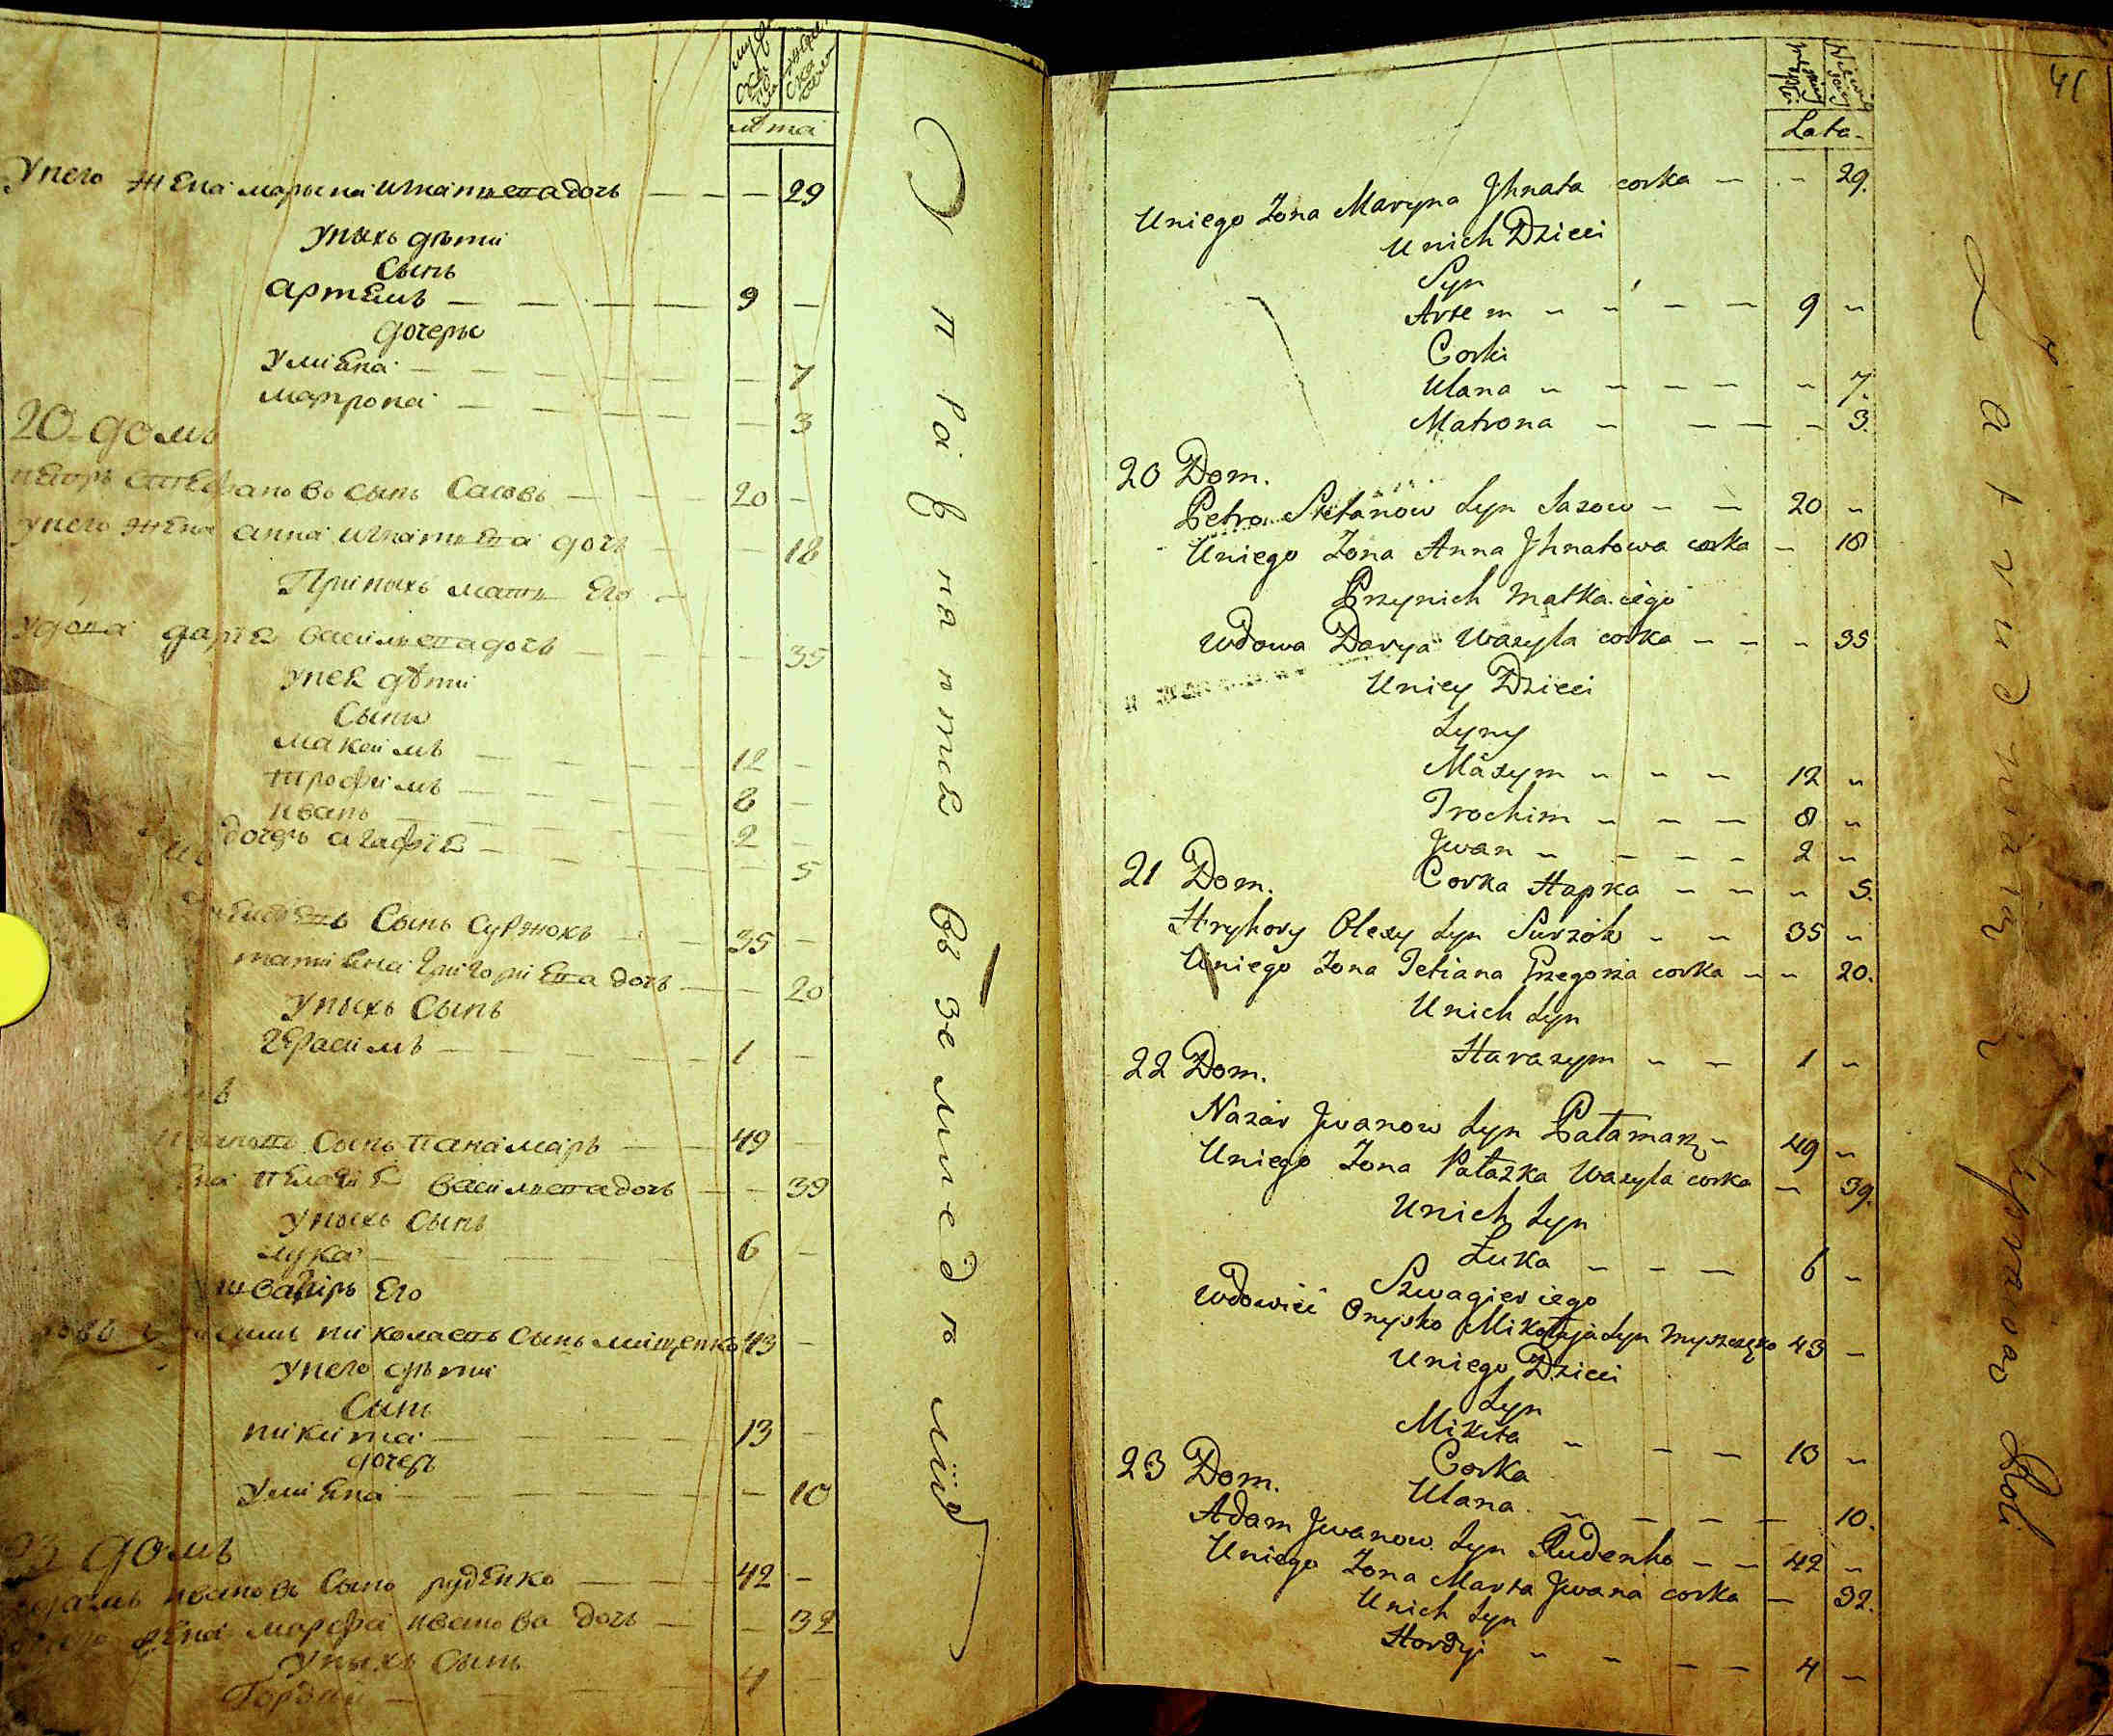 лѣта
У него жена марына игнатьева дочь — — — 29
У ныхъ дѣти
Сынъ
Артемъ — — — — 9 —
дочеры
Улиѣна — — — — — — 7
матрона — — — — — 3
20 домъ
петръ стефановъ сынъ Сасовъ — — — 20 —
У него жена анна игнатьева дочь — — 18
При ныхъ мать Его —
Удова дарiѣ васильева дочь — — — — 35
У неѣ дѣти
Сыны
максимъ — — — — 12 —
трофимъ — — — — 8 —
иванъ — — — — — 2 —
дочерь агафiѣ — — — — — 5
Сынъ Суржокъ — — 35 —
татиѣна григориева дочь — — 20
У ныхъ Сынъ
герасимъ — — — — — 1 —
Сынъ панамаръ — — 49 —
васильева дочь — — 39
У ныхъ Сынъ
лука — — — — — 6 —
швагiръ Его
николаевъ сынъ мищенко 43 —
У него дѣти
Сынъ
никита — — — — — 13 —
дочерь
Улиѣна — — — — — — 10
23 домъ
адамъ ивановъ Сынъ руденко — — — 42 —
жена марфа иванова дочь — — 32
У ныхъ Сынъ
Гордей — — — — 4 —
Управленные въ земледѣлiи
41
Lata
Uniego Zona Maryna Jhnata corka — — 29.
Unich Dzieci
Syn
Artem — — — — 9 —
Corki
Ulana — — — — — 7.
Matrona — — — — 3.
20 Dom.
Petro Stefanow Syn Sazow — — 20 —
Uniego Zona Anna Jhnatowa corka — 18
Przynich Matka iego
Wdowa Darya Wasyla corka — — — 35
Uniey Dzieci
Syny
Maxym — — — 12 —
Trochim — — — 8 —
Jwan — — — — 2 —
Corka Hapka — — — 5.
21 Dom.
Hryhory Olexy Syn Surzok — — 35 —
Uniego Zona Tetiana Grzegorza corka — — 20.
Unich Syn
Harasym — — 1 —
22 Dom.
Nazar Jwanow Syn Pałamarz — 49 —
Uniego Zona Pałazka Wasyla corka — 39.
Unich Syn
Łuka — — — 6 —
Szwagier iego
Wdowiec Onysko Mikołaja Syn 43 —
Uniego Dzieci
Syn
Mikita — — — 13 —
Corka
Ulana — — — — 10.
23 Dom.
Adam Jwanow Syn Rudenko — — 42 —
Uniego Zona Marta Jwana corka — 32.
Unich Syn
Hordyi — — — — 4 —
Zatrudniaią Uprawą Roli